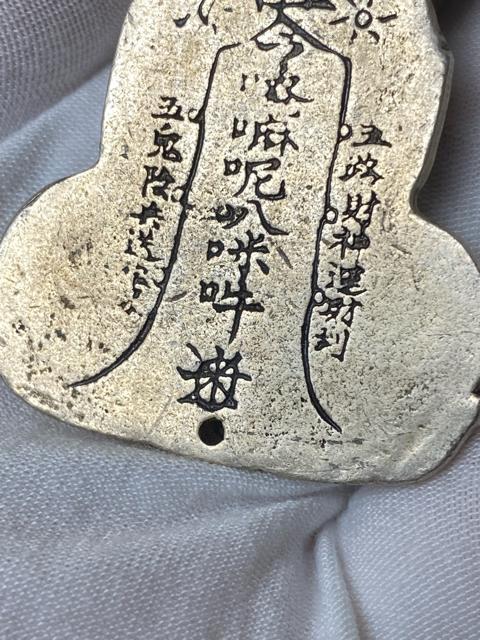 五路財神運財到
令唵嘛呢叭咪吽
五鬼陰兵送